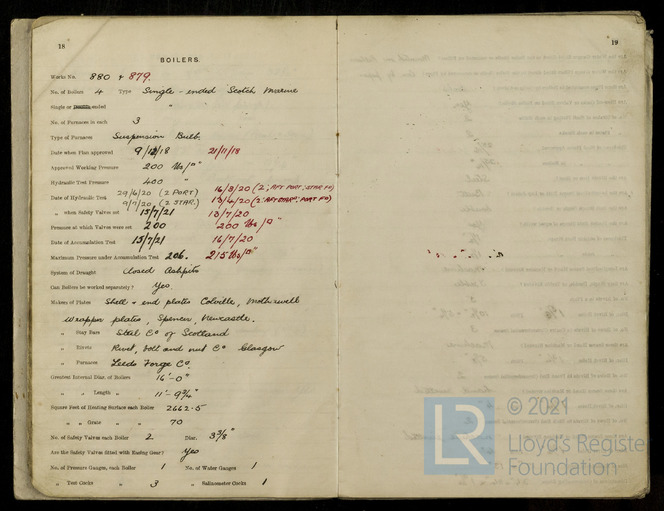 18
BOILERS.
Works No. 880 & 879.
No. of Boilers 4 Type Single-ended Scotch Marine
Single or Double ended "
No. of Furnaces in each 3
Type of Furnaces Suspension Bulb.
Date when Plan approved 9/12/18 21/11/18
Approved Working Pressure 200 lbs/□"
Hydraulic Test Pressure 400 "
Date of Hydraulic Test 29/6/20 (2 PORT) 9/7/20 (2 STAR.) 16/3/20 (2; AFT PORT; STAR FD) 13/4/20 (2; AFT STAR; PORT FD)
" when Safety Valves set 15/7/21 13/7/20
Pressure at which Valves were set 200 200 lbs/□"
Date of Accumulation Test 15/7/21 16/7/20
Maximum Pressure under Accumulation Test 206. 215 lbs/□"
System of Draught Closed Ashpits
Can Boilers be worked separately? Yes
Makers of Plates Shell & end plates Colville, Motherwell
Wrapper plates, Spencer Newcastle.
" Stay Bars Steel Co of Scotland
" Rivets Rivet, bolt and nut Co Glasgow
" Furnaces Leeds Forge Co.
Greatest Internal Diam. of Boilers 16'-0"
" " Length " 11'-9¾"
Square Feet of Heating Surface each Boiler 2662.5
" " Grate " " 70
No. of Safety Valves each Boiler 2 Diar. 3⅜"
Are the Safety Valves fitted with Easing Gear? Yes
No. of Pressure Gauges, each Boiler 1 No. of Water Gauges 1
" Test Cocks " 3 " Salinometer Cocks 1
19
LR © 2021
Lloyd's Register
Foundation